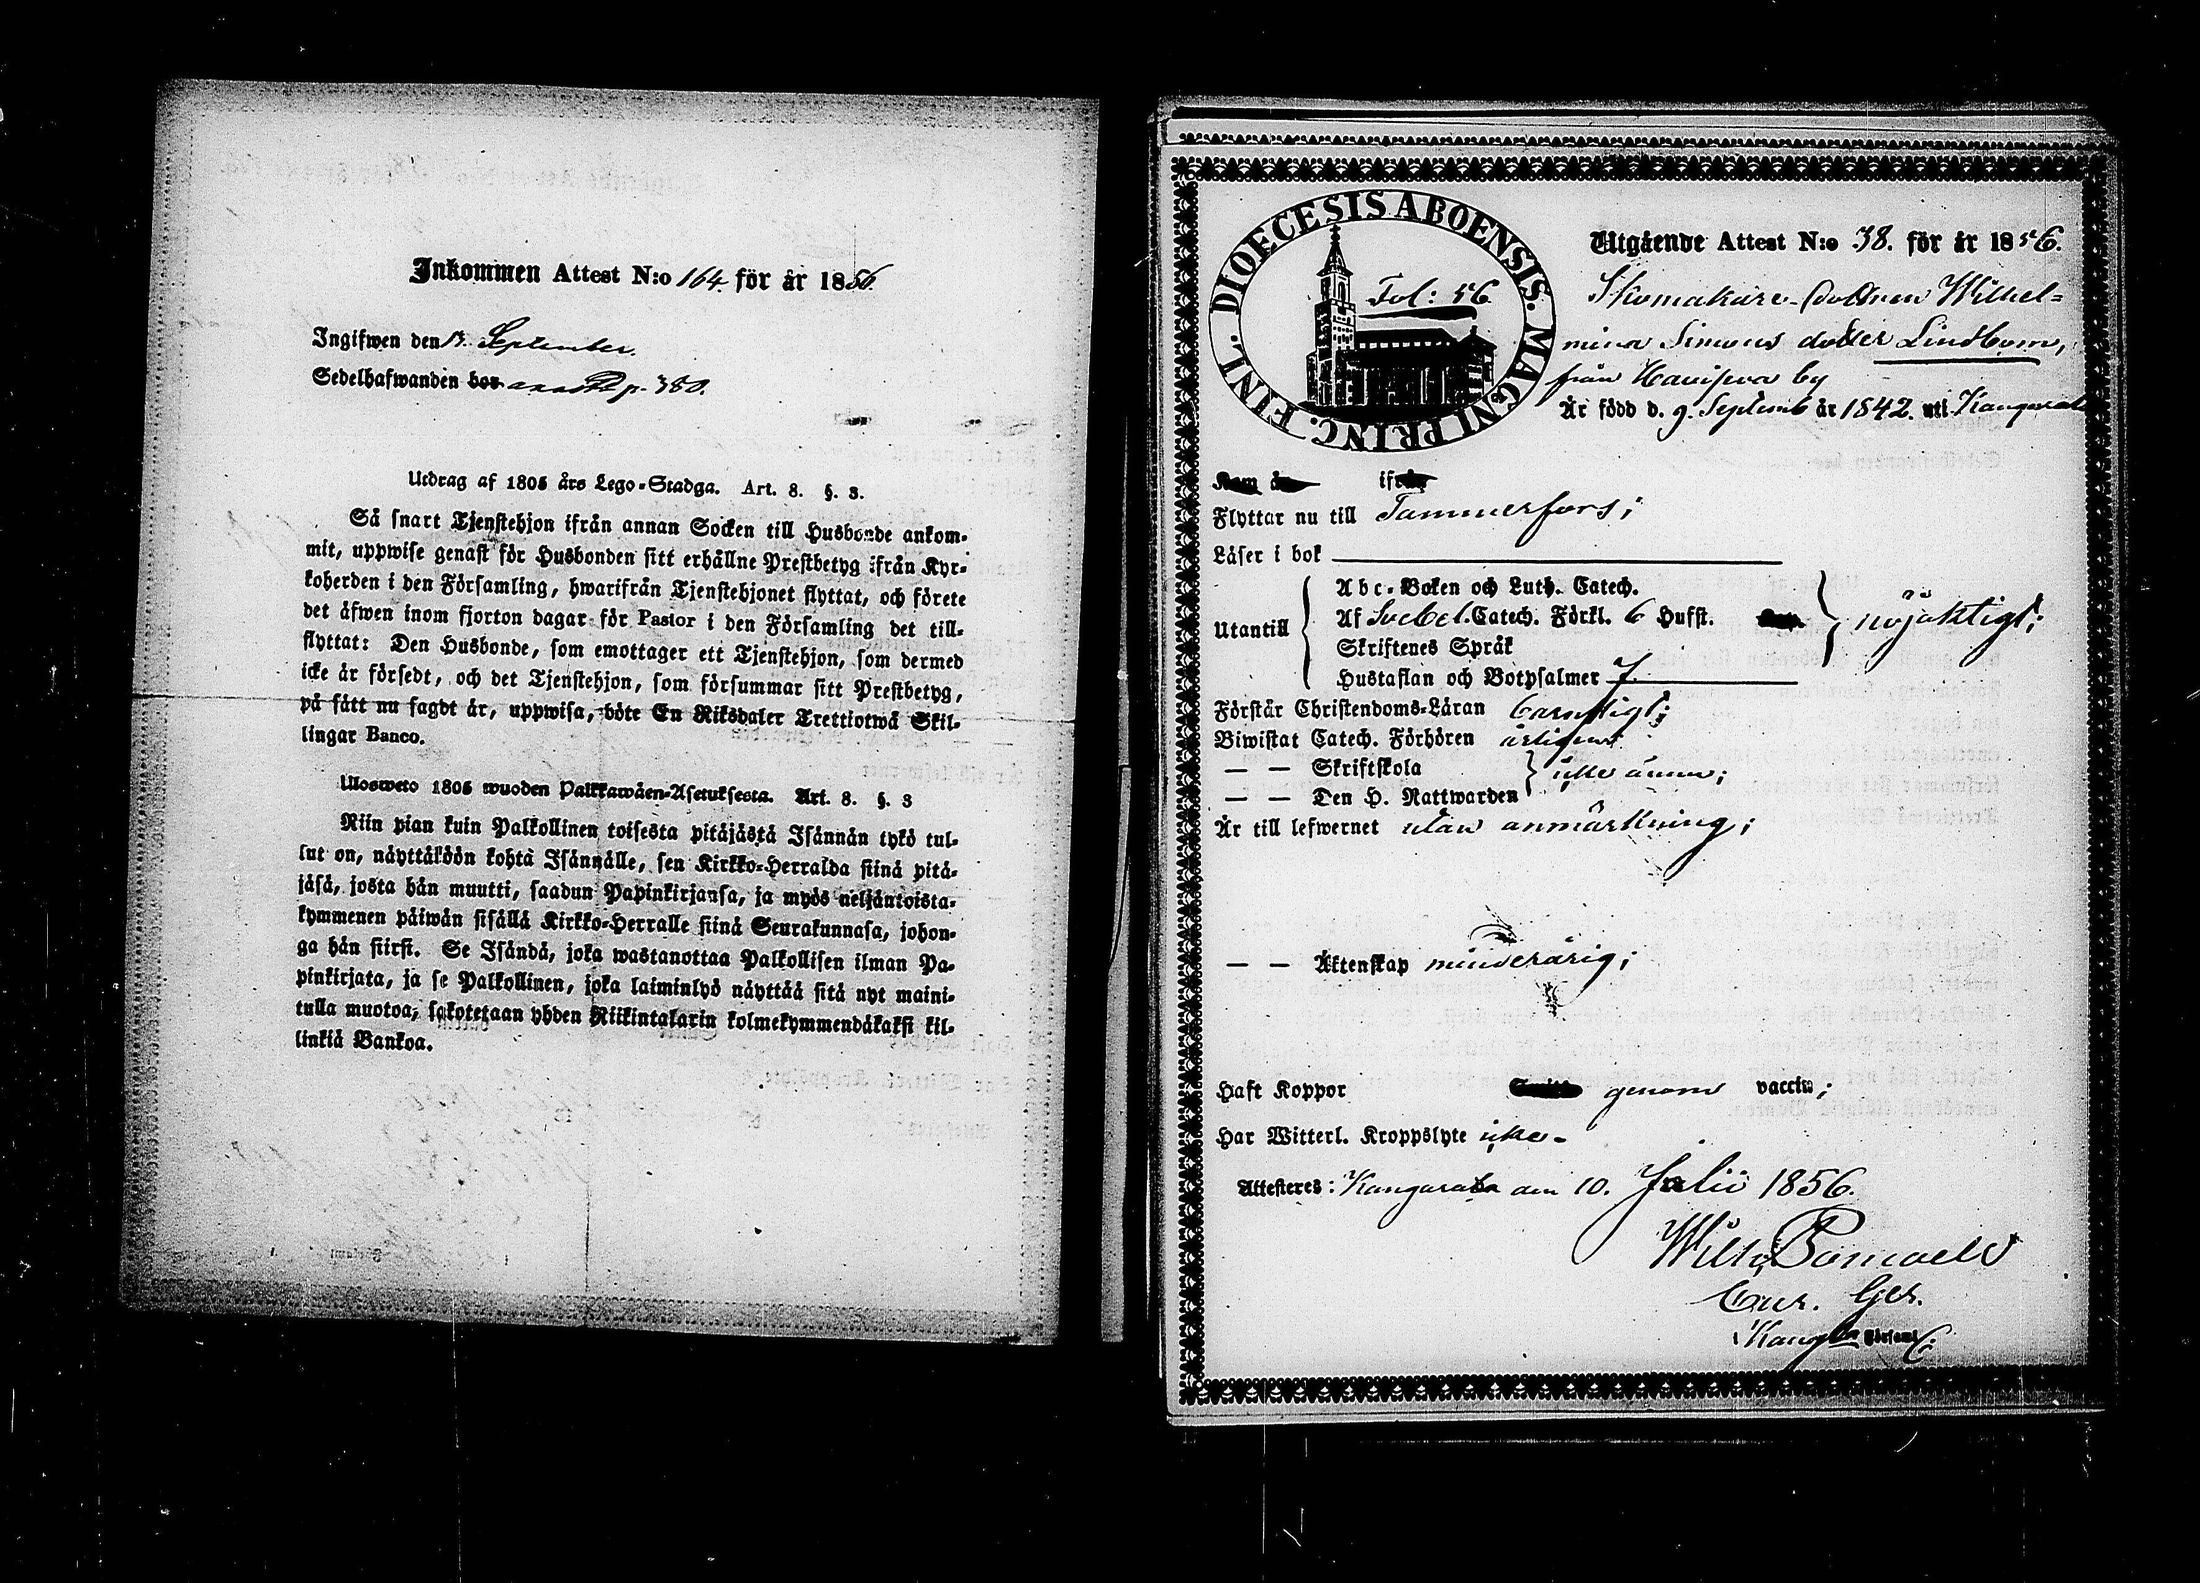 Inkommen Attest N:o 164. för år 1856.
Ingifwen den 13. September.
Sedelhafwanden bor antekn. p. 380.
Utdrag af 1805 års Lego-Stadga. Art. 8. §. 3.
Så snart Tjenstehjon ifrån annan Socken till Husbonde ankom-
mit, uppwise genast för Husbonden sitt erhållne Prestbetyg ifrån Kyr-
koherden i den Församling, hwarifrån Tjenstehjonet flyttat, och förete
det äfwen inom fjorton dagar för Pastor i den Församling det till-
flyttat: Den Husbonde, som emottager ett Tjenstehjon, som dermed
icke är försedt, och det Tjenstehjon, som försummar sitt Prestbetyg,
på sätt nu sagdt är, uppwisa, böte En Riksdaler Trettiotwå Skil-
lingar Banco.
Ulosweto 1805 wuoden Palkkawäen-Asetuksesta. Art. 8. §. 3
Niin pian kuin Palkollinen toisesta pitäjästä Isännän tykö tul-
lut on, näyttäköön kohta Isännälle, sen Kirkko-Herralda siinä pitä-
jäsä, josta hän muutti, saadun Papinkirjansa, ja myös neljäntoista-
kymmenen päiwän sisällä Kirkko-Herralle siinä Seurakunnasa, johon-
ga hän siirsi. Se Isändä, joka wastanottaa Palkollisen ilman Pa-
pinkirjata, ja se Palkollinen, joka laiminlyö näyttää sitä nyt maini-
tulla muotoa, sakotetaan yhden Riikintalarin kolmekymmendäkaksi kil-
linkiä Bankoa.
DIOECESIS ABOENSIS. MAGNI PRINC. FINL.
Fol: 56
Utgående Attest N:o 38. för år 1856.
Skomakare-dottren Wilhel-
mina Simons dotter Lindbom,
från Havisva by
Är född d. 9. Septemb år 1842. uti Kangasala
Kom år ifrån
Flyttar nu till Tammerfors;
Läser i bok
Utantill
Abc-Boken och Luth. Catech.
Af Svebel. Catech. Förkl. 6 Hufst. nöjaktigt;
Skriftenes Språk
Hustaflan och Botpsalmer 7.
Förstår Christendoms-Läran barnsligt;
Biwistat Catech. Förhören årligen
— — Skriftskola
— — Den H. Nattwarden icke ännu;
Är till lefwernet utan anmärkning;
— — Äktenskap minderårig;
Haft Koppor genom vaccin;
Har Witterl. Kroppslyte icke.
Attesteres: Kangasala den 10. Julii 1856.
Wilh.
Kangla Församl.